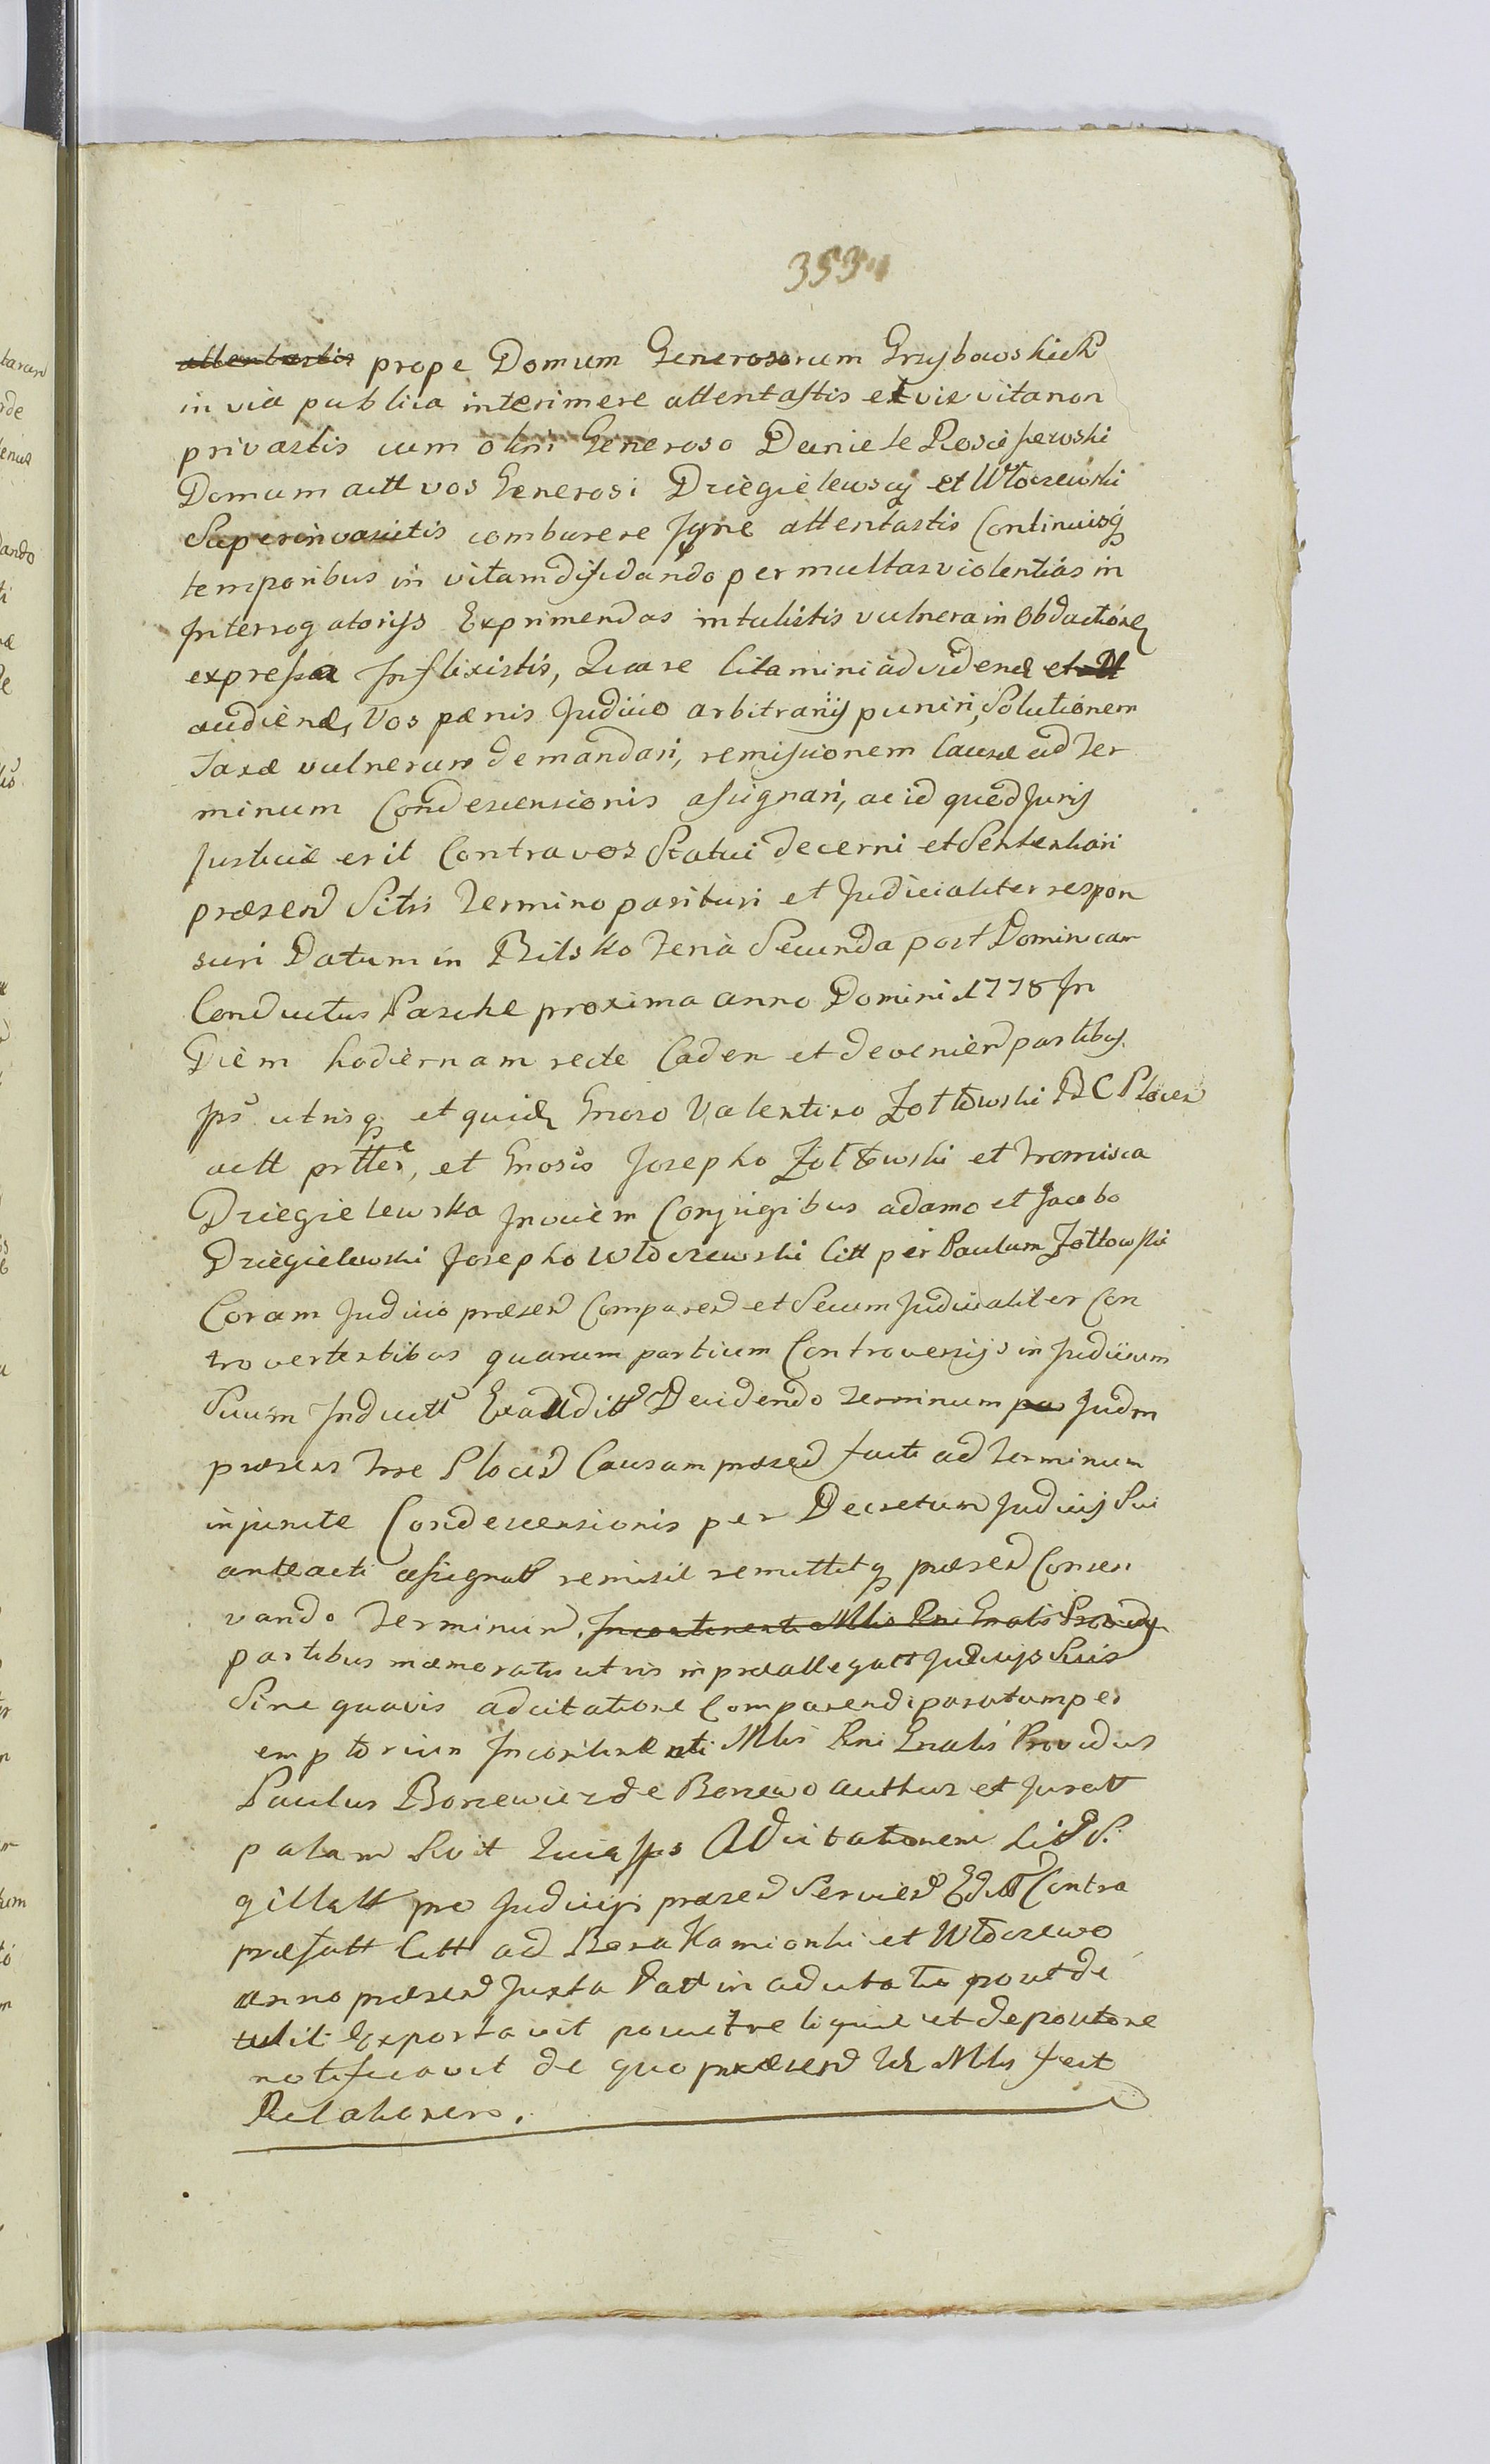 353
attentastis prope Domum Generosorum Grzybowskich
in via publica interimere attentastis et vix vita non
privastis cum olim Generoso Daniele
Domum actt vos Generosi Dziegielewscy et Włoczewski
Superinvasitis comburere Igne attentastis Continuisq
temporibus in vitam difidando per multas violentias in
Interrogatorijs Exprimendas intulistis vulnera in Obductione
expressa Inflixistis, Quare Citamini ad videnđ et
audienđ, Vos pænis Judicio arbitrarijs puniri, Solutionem
Taxæ vulnerum demandari, remissionem Causæ ad Ter
minum Condescensionis assignari, ac id quod Juris
Justiciæ erit Contra vos Statui decerni et Sententiari
præsenđ Sitis Termino parituri et Judicialiter respon
suri Datum in Bilsko Feria Secunda post Dominicam
Conductus Paschæ proxima anno Domini 1778 In
Diem hodiernam recte Caden et devenienđ partibus
Ips utrisq et quidem Gnoso Valentino Zołtowski B C Plocen
actt prtter, et Gnosis Josepho Zołtowski et
Dziegielewska Invicem Conjugibus adamo et Jacobo
Dziegielewski Josepho Włoczewski Citt per Paulum Zołtowski
Coram Judicio præsenđ Comparenđ et Secum Judicialiter Con
trovertentibus quarum partium Controversijs in Judicium
Suum Inductt Exauditt Decidendo Terminum Judm
præsens Trre Plocen Causam præsenđ facti ad Terminum
injuncte Condescensionis per Decretum Judicij Sui
anteacti assignatt remisit remittitq præsenđ Conser
vando Terminum. Incontinenti Mlis Rni Gnalis Providus
partibus memoratis utris in præallegatt Judicijs Suis
Sine quavis adcitatione Comparendi paratum per
emptorium Incontinenti Mlis Rni Gnalis Providus
Paulus Borzewicz de Borzewo authus et Juratt
palam Suit Quia Ips Adcitationem Litt Si
gillatt pro Judicijs præsenđ Servienđ Editt Contra
præfatt Citt ad Bona Kamionki et Włoczewo
anno præsenđ Juxta Datt in adcitatio prout de
tulit Exportavit posuitve liquit et de positione
notificavit de quo præsenđ Mlis fecit
Relationem.